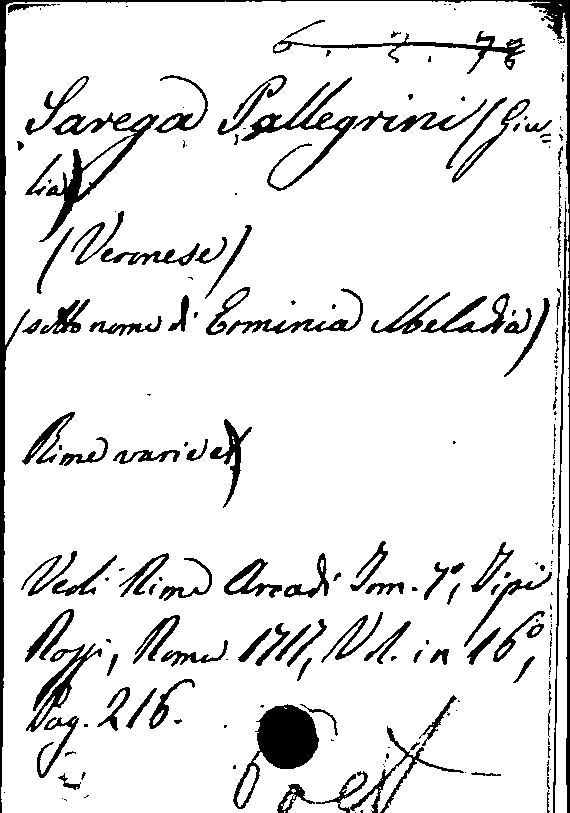 6. 2. 78
Sarega Pallegrini (Giu=
lia)
(Veronese)
(sotto nome di Erminia Meladia)
Rime varie
Vedi Rime Arcadi Tom. 7°, Tipi
Rossi, Roma 1717, Vol. in 16°,
Pag. 216.
Poet